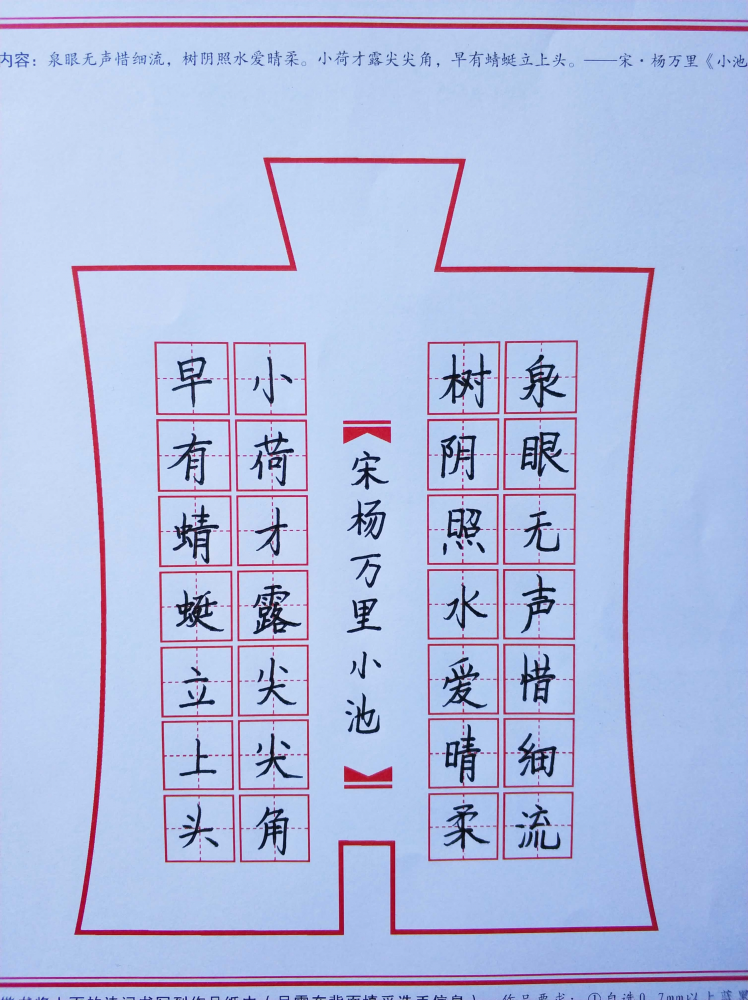 内容：泉眼无声惜细流，树阴照水爱晴柔。小荷才露尖尖角，早有蜻蜓立上头。——宋·杨万里《小池
泉眼无声惜细流
树阴照水爱晴柔
宋杨万里小池
小荷才露尖尖角
早有蜻蜓立上头
作品要求：①自选0.7mm以上